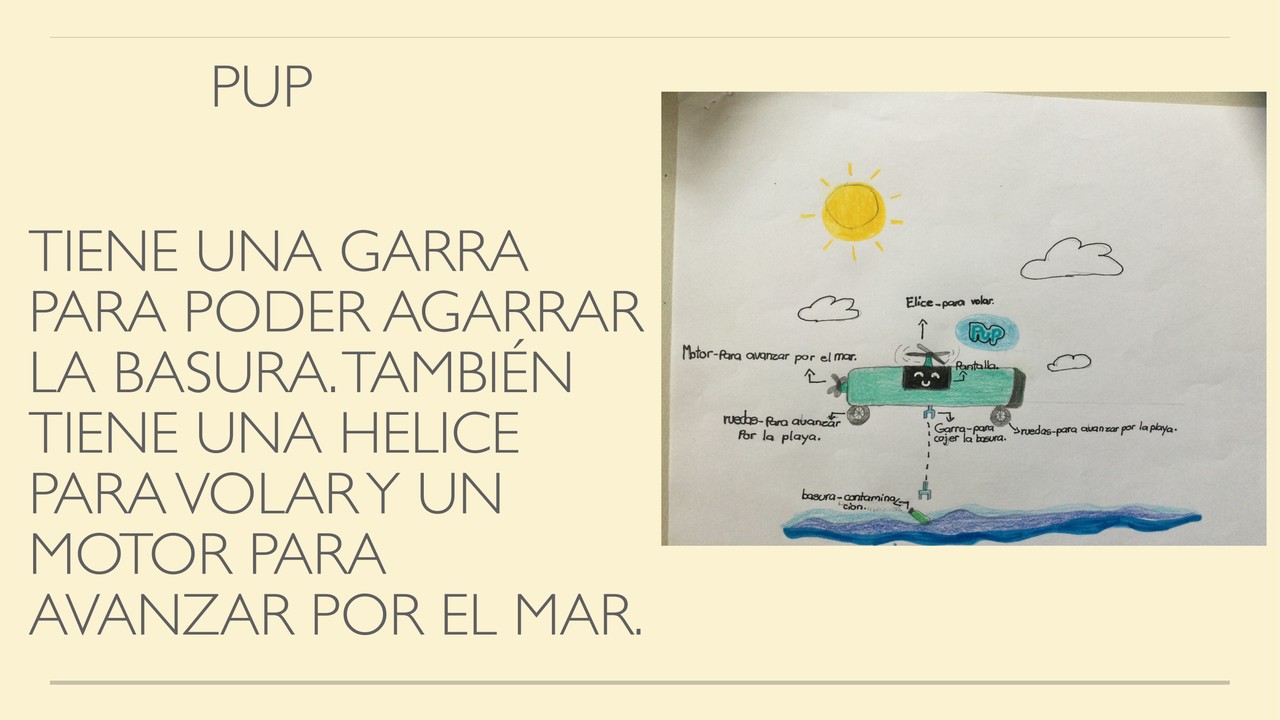 PUP
TIENE UNA GARRA
PARA PODER AGARRAR
LA BASURA. TAMBIÉN
TIENE UNA HELICE
PARA VOLAR Y UN
MOTOR PARA
AVANZAR POR EL MAR.
Elice-para volar.
PUP
Motor-Para avanzar por el mar.
Pantalla.
ruedas-Para avanzar
Por la playa.
Garra-para
cojer la basura.
ruedas-para avanzar por la playa.
basura-contamina
cion.